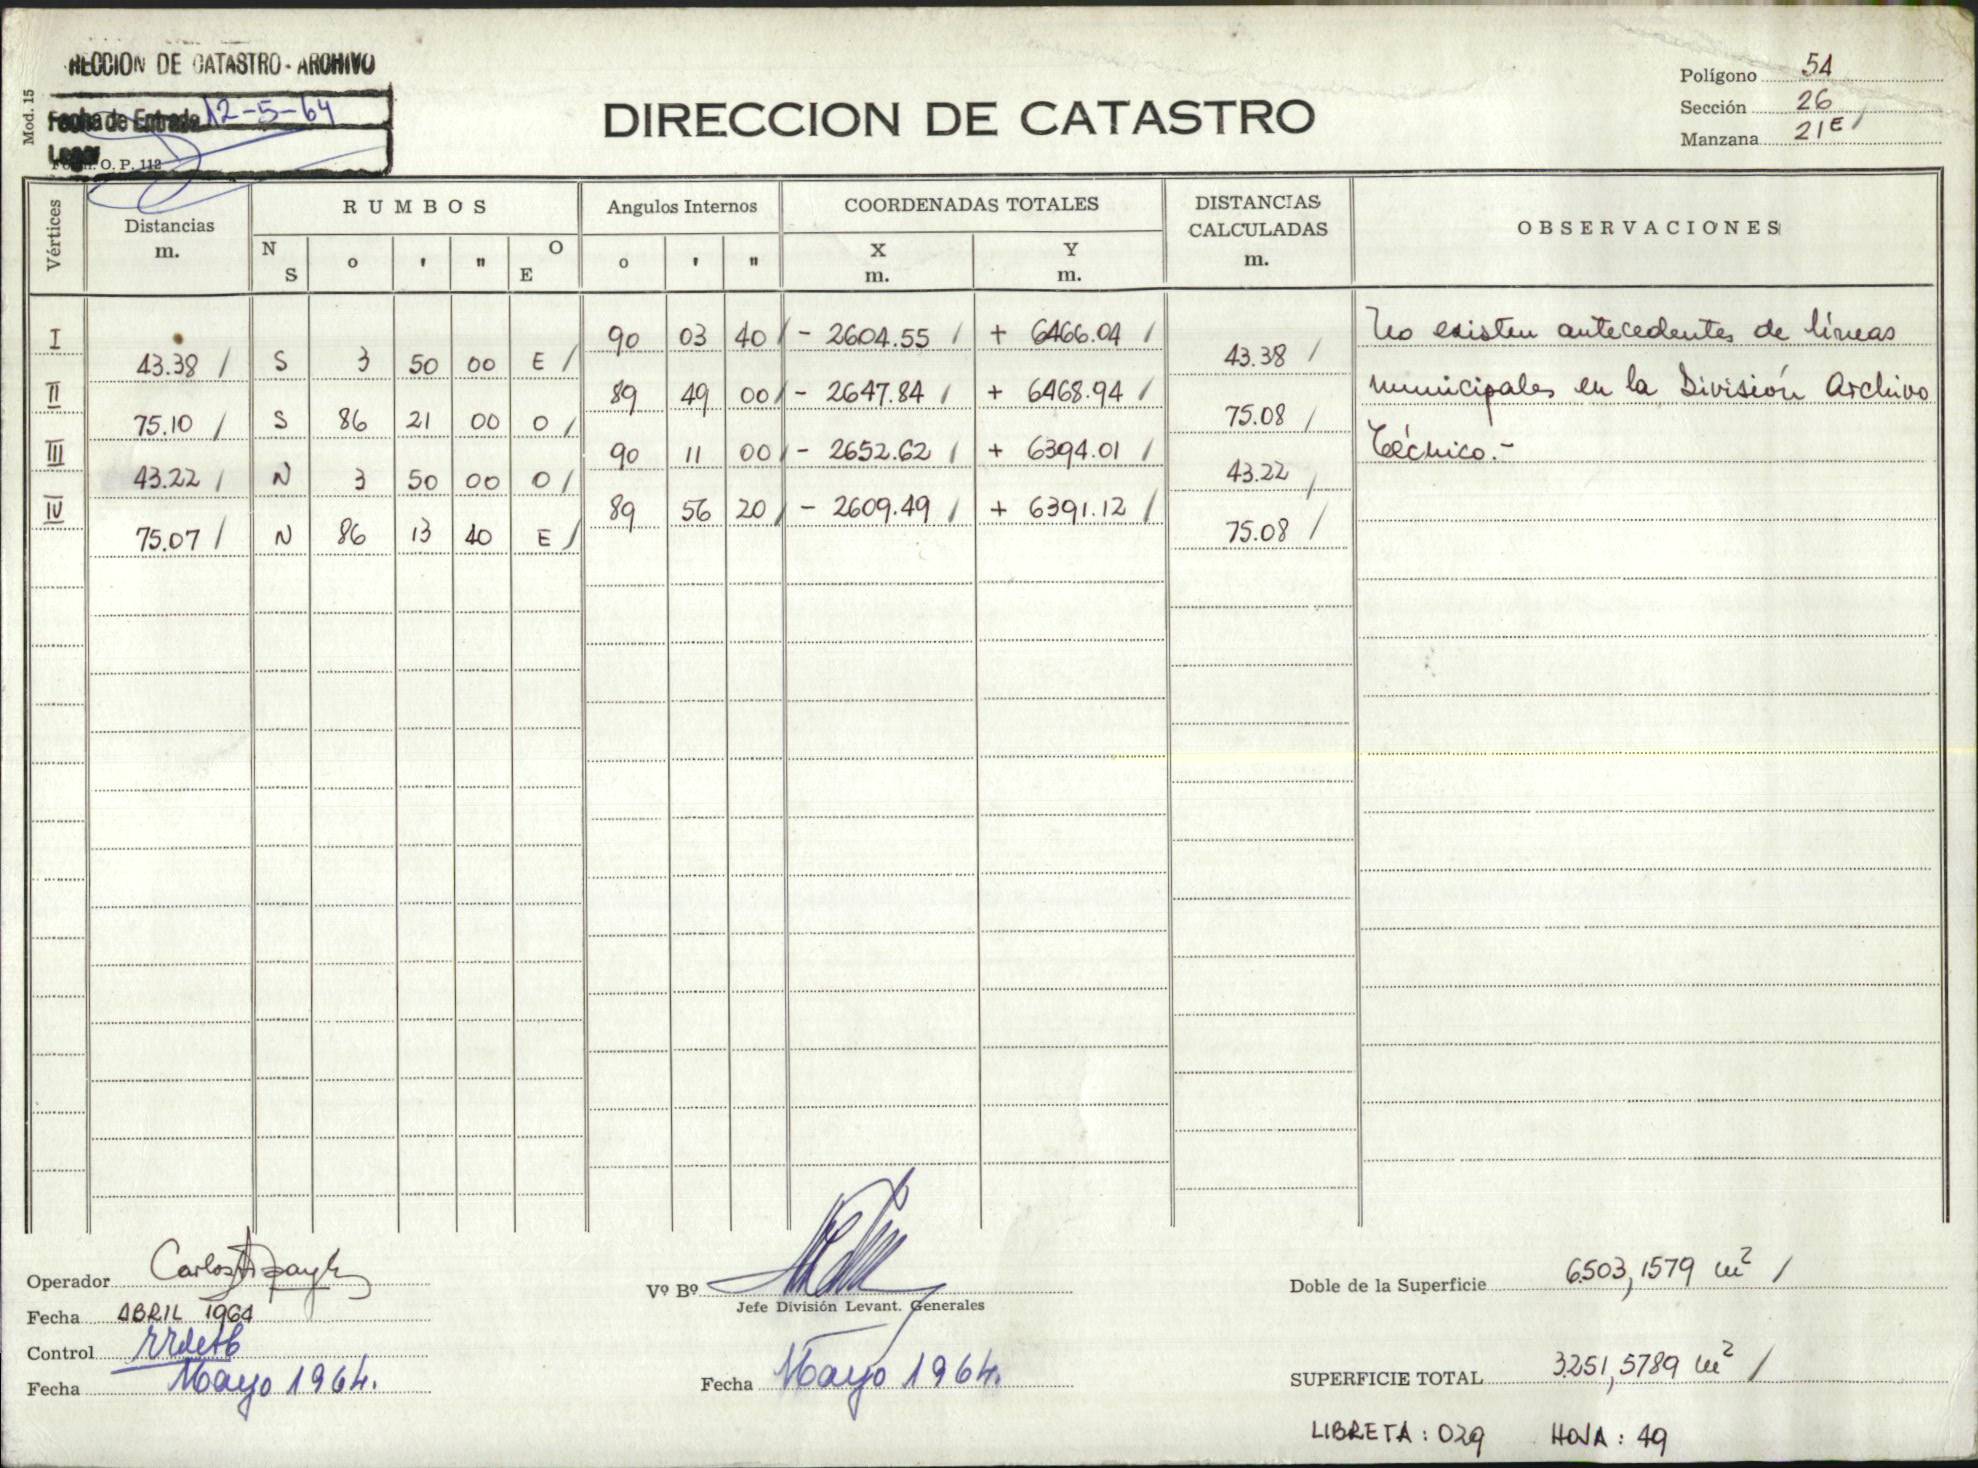 RECCION DE CATASTRO - ARCHIVO
Mod. 15
Fecha de Entrada 12-5-64
Legajo
Form. O. P. 112
DIRECCION DE CATASTRO
Polígono 54
Sección 26
Manzana 21E
Vértices
Distancias
m.
RUMBOS
N S o ' " O E
Angulos Internos
o ' "
COORDENADAS TOTALES
X m. Y m.
DISTANCIAS
CALCULADAS
m.
OBSERVACIONES
I 90 03 40 - 2604.55 + 6466.04
43.38 S 3 50 00 E 43.38
II 89 49 00 - 2647.84 + 6468.94
75.10 S 86 21 00 O 75.08
III 90 11 00 - 2652.62 + 6394.01
43.22 N 3 50 00 O 43.22
IV 89 56 20 - 2609.49 + 6391.12
75.07 N 86 13 40 E 75.08
No existen antecedentes de líneas
municipales en la División Archivo
Técnico.-
Operador Carlos
Fecha ABRIL 1964
Control
Fecha Mayo 1964.
Vº Bº
Jefe División Levant. Generales
Fecha Mayo 1964.
Doble de la Superficie 6503,1579 m²
SUPERFICIE TOTAL 3251,5789 m²
LIBRETA : 029 HOJA : 49